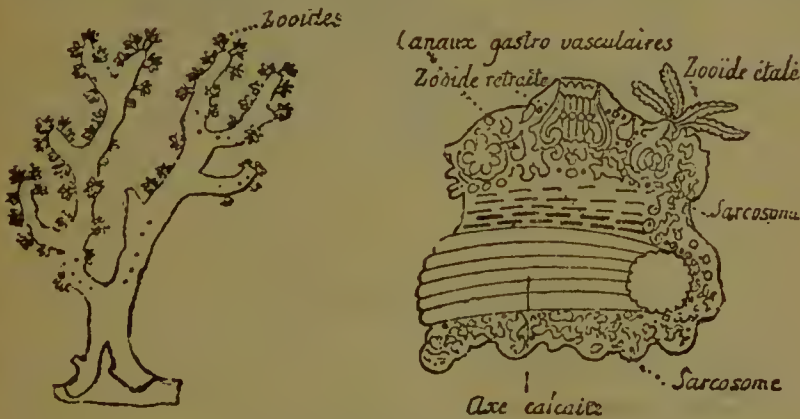 Zooïdes
Canaux gastro vasculaires
Zooïde retraite
Zooïde étalé
Sarcosome
Sarcosome
Axe calcaire